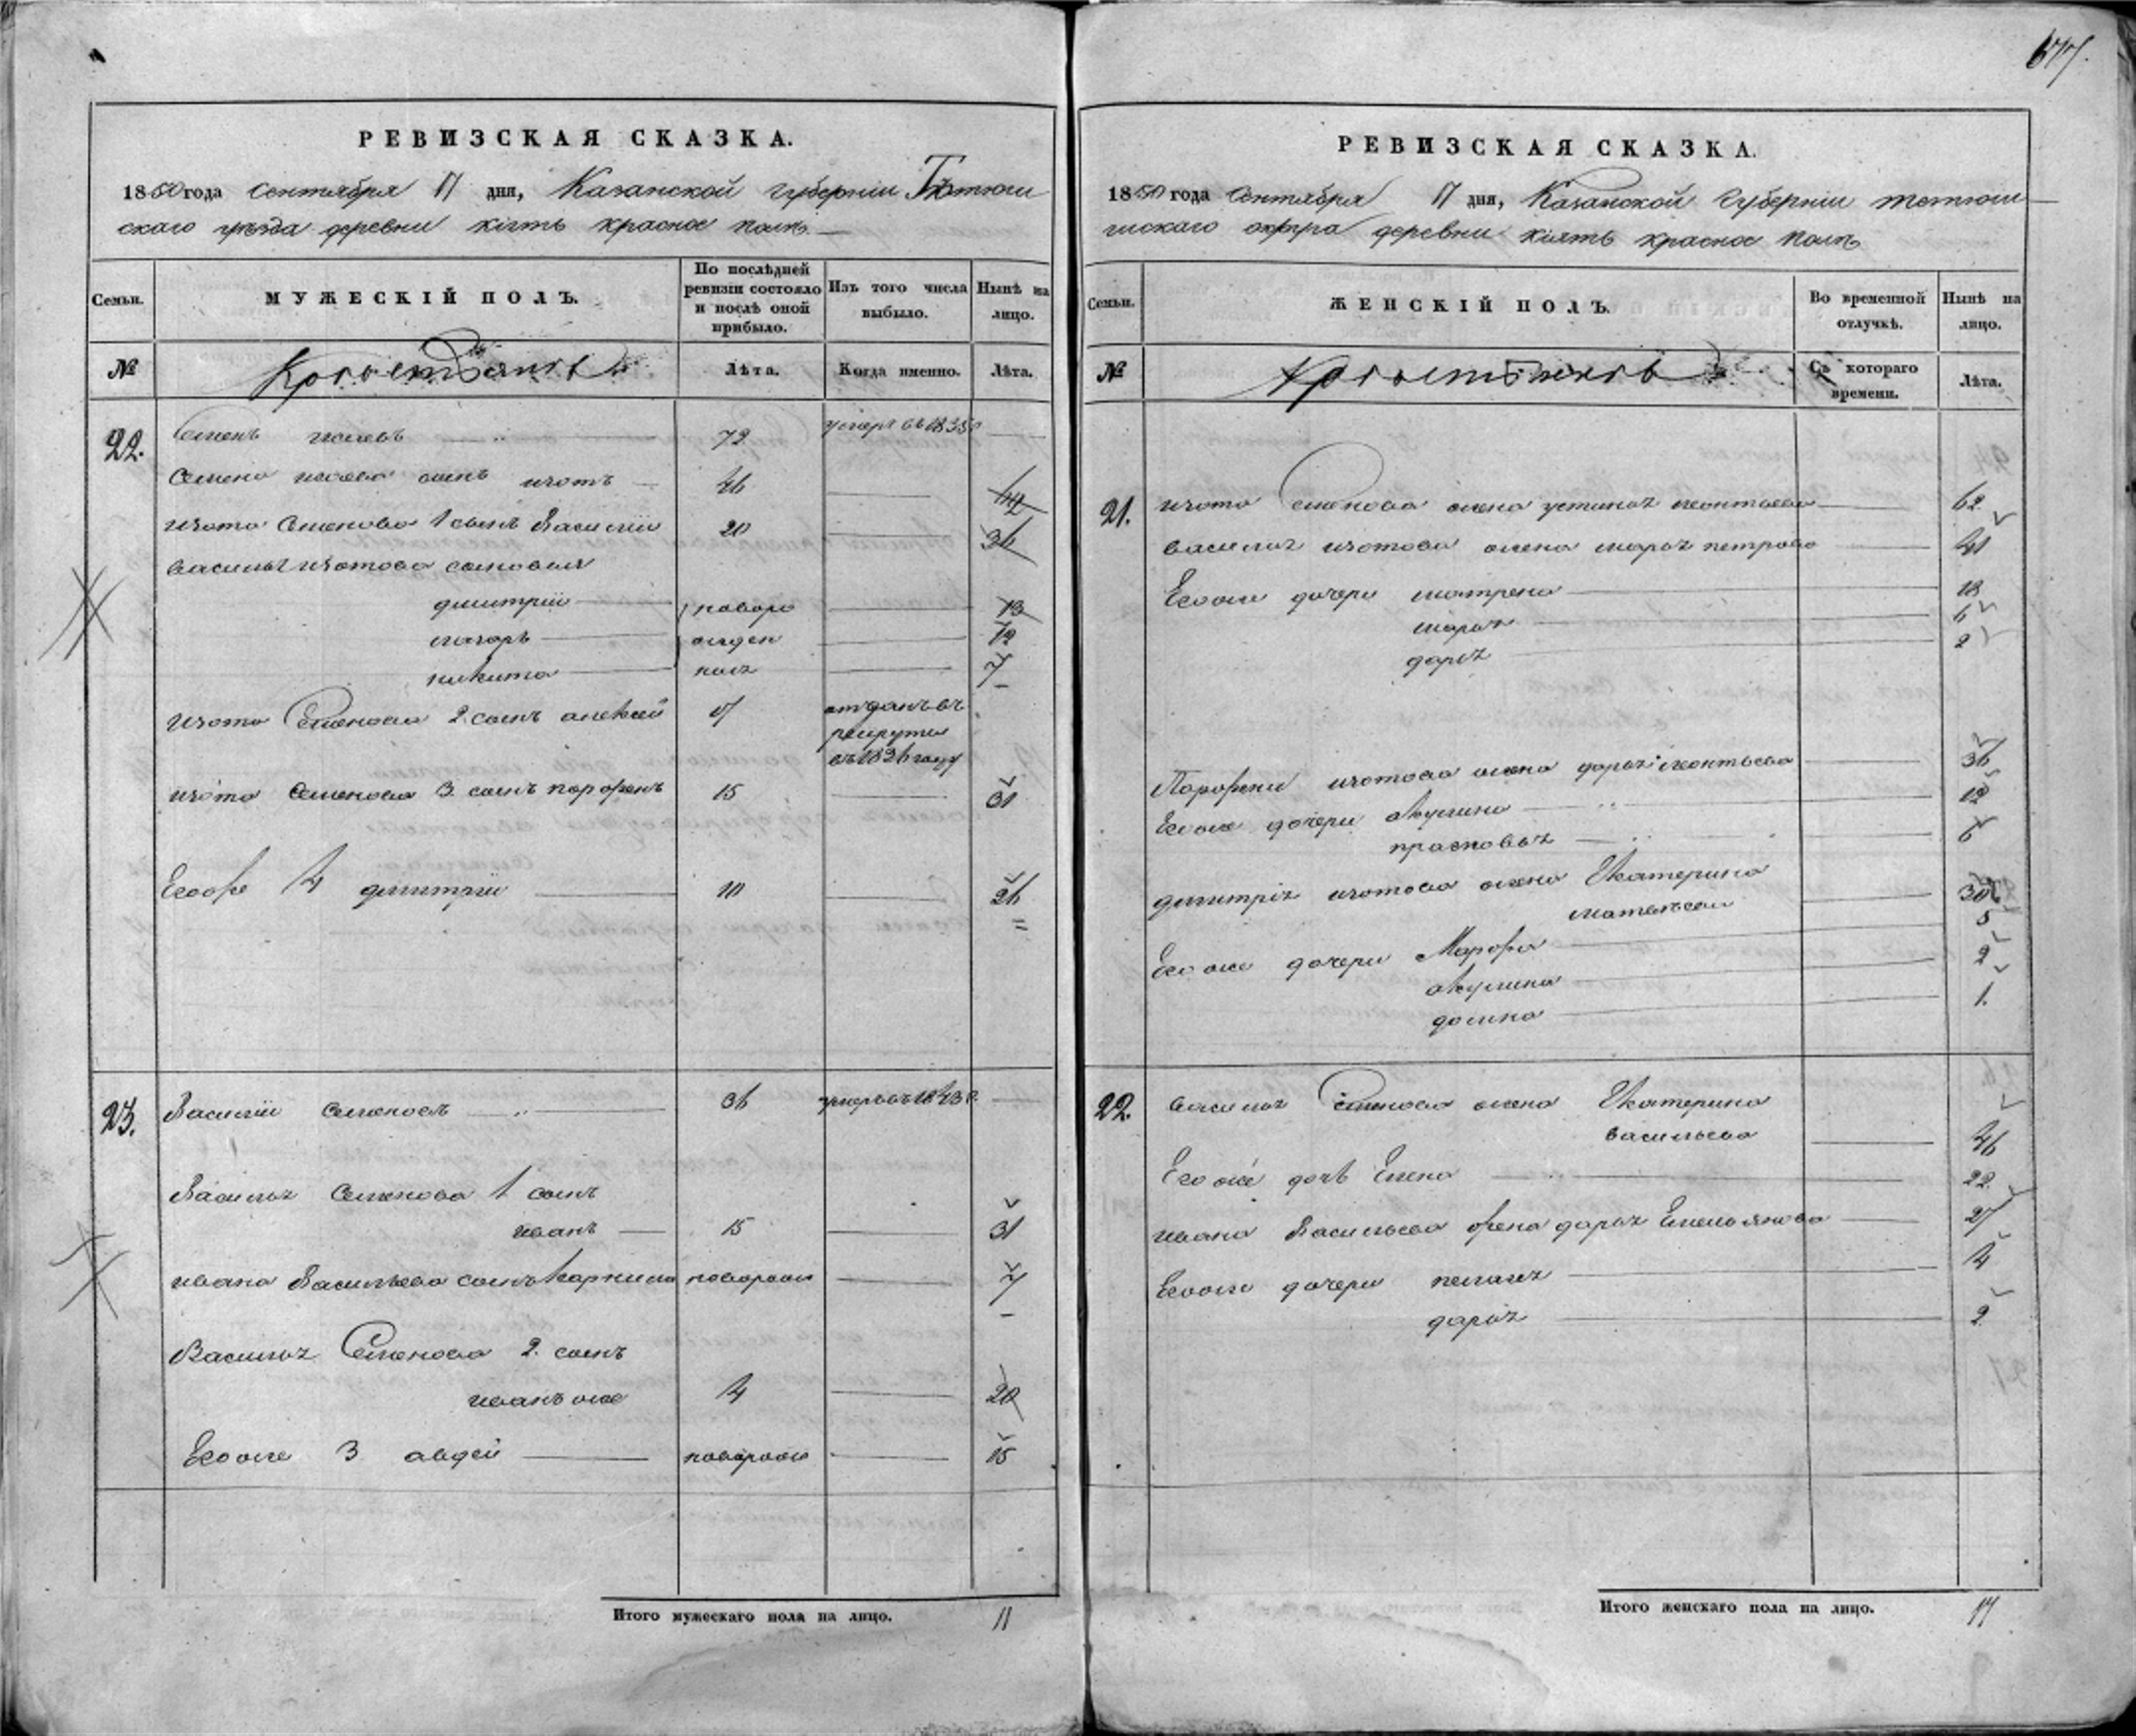 677.
РЕВИЗСКАЯ СКАЗКА.
1850 года Сентября 17 дня, Казанской губернии Тетюш
скаго уезда деревни кіять красное тожъ
Семьи.
МУЖЕСКІЙ ПОЛЪ.
По послѣдней ревизіи состояло и послѣ оной прибыло.
Изъ того числа выбыло.
Нынѣ на лицо.
№
Крестьянъ
Лѣта.
Когда именно.
Лѣта.
22.
Семенъ 72 умеръ въ 1835
Семена сынъ изотъ 46
изота Семенова 1 сынъ Василіи 20 36
василья изотова сыновья
димитріи новоро 13
макаръ жден 12
никита ные 7
изота Семенова 2 сынъ алексей 17 отданъ въ
рекруты
въ 1836 году
изота Семенова 3 сынъ парфенъ 15 31
Егоже 4 димитріи 10 26
23.
Василіи Семеновъ 36 умеръ въ 1843
Василья Семенова 1 сынъ
иванъ 15 31
ивана Васильева сынъ новорож 7
Василья Семенова 2 сынъ
иванъ же 4 20
Егоже 3 авдей новорож 15
Итого мужескаго пола на лицо. 11
РЕВИЗСКАЯ СКАЗКА.
1850 года Сентября 17 дня, Казанской Губерніи тетюш
скаго округа деревни кіять красное тожъ
Семьи.
ЖЕНСКІЙ ПОЛЪ.
Во временной отлучкѣ.
Нынѣ на лицо.
№
Крестьянъ
Съ котораго времени.
Лѣта.
21.
изота Семенова жена устинья леонтьева 62
василья изотова жена марья петрова 41
Егоже дочери матрена 18
марья 6
дарья 2
Парфена изотова жена дарья леонтьева 36
Егоже дочери акулина 12
прасковья 6
димитрія изотова жена Екатерина
матвѣева 30
Егоже дочери Марфа 5
акулина 2
домна 1.
22.
василья Семенова жена Екатерина
васильева 46
Егоже дочь Елена 22
ивана Васильева жена дарья Емельянова 27
Егоже дочери пелагея 4
дарья 2
Итого женскаго пола на лицо. 17